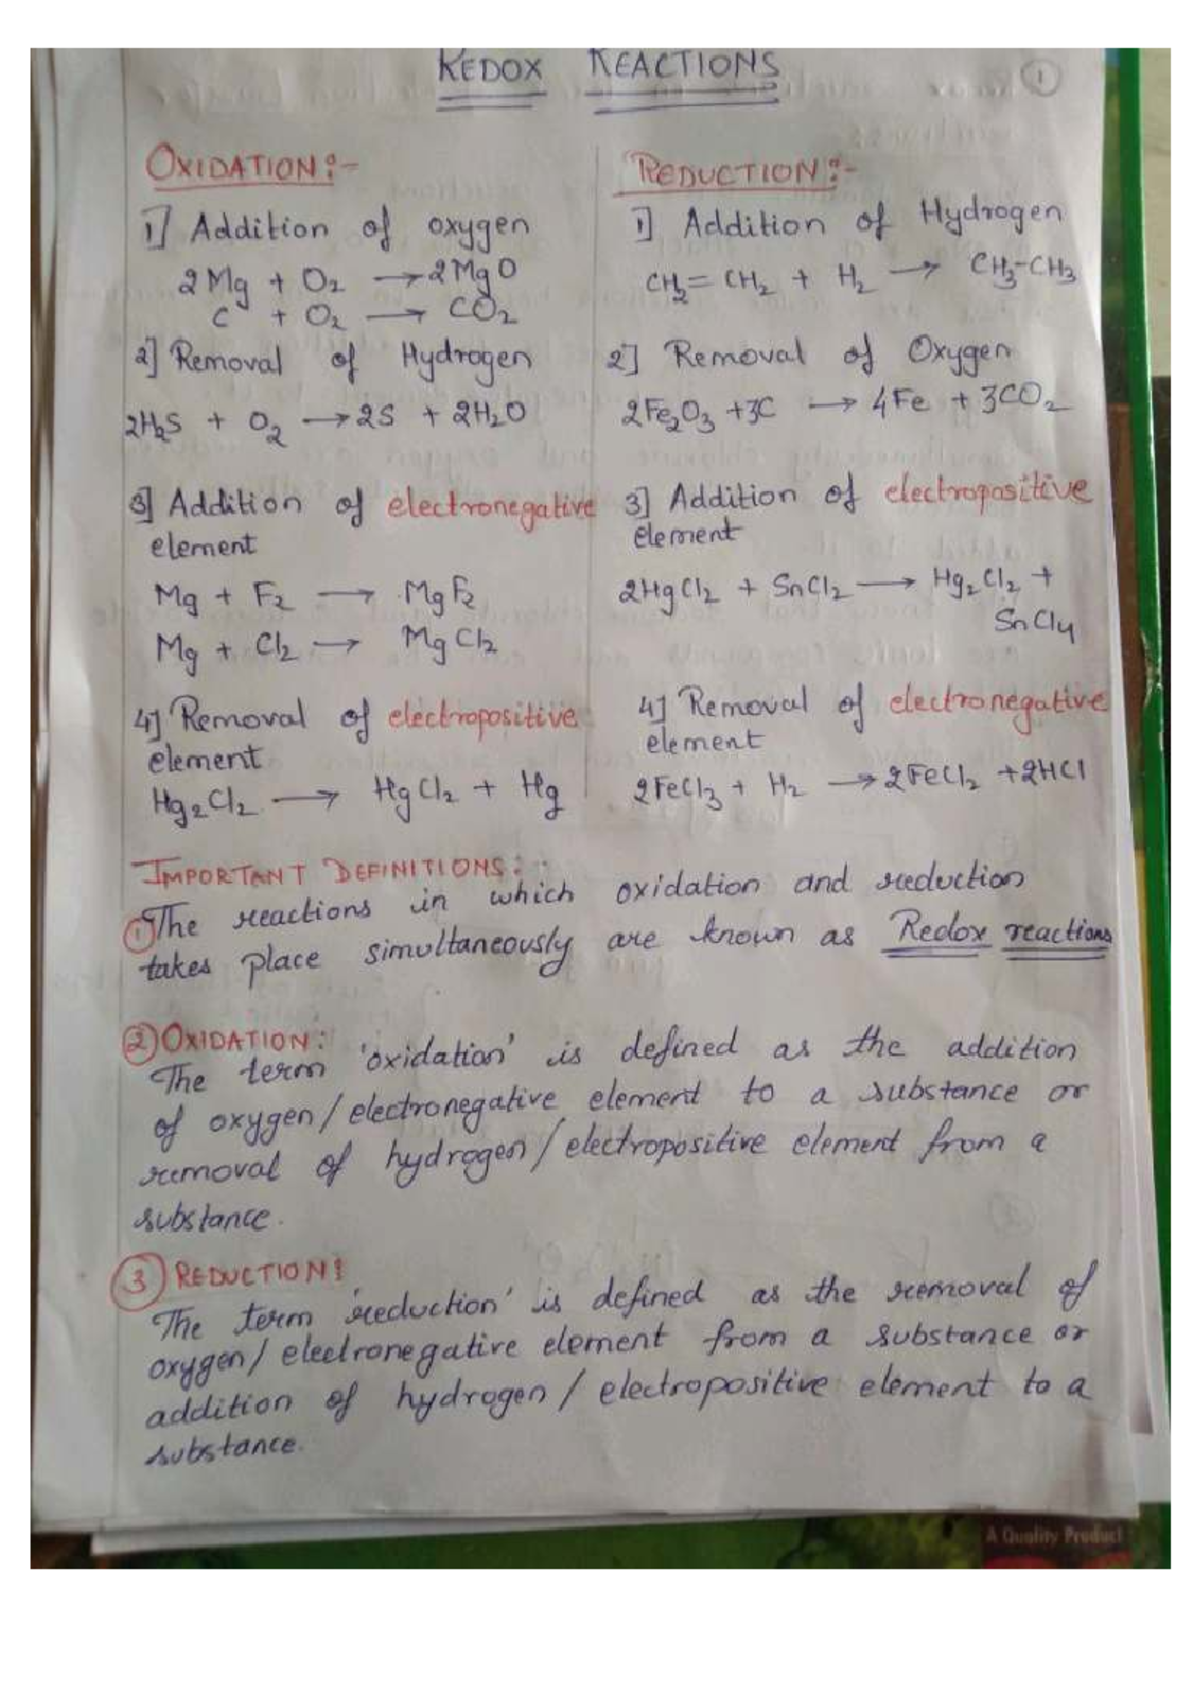 REDOX REACTIONS
1
OXIDATION:-
1] Addition of oxygen
2Mg + O₂ → 2MgO
C + O₂ → CO₂
2] Removal of Hydrogen
2H₂S + O₂ → 2S + 2H₂O
3] Addition of electronegative
element
Mg + F₂ → MgF₂
Mg + Cl₂ → MgCl₂
4] Removal of electropositive
element
Hg₂Cl₂ → HgCl₂ + Hg
REDUCTION:-
1] Addition of Hydrogen
CH₂=CH₂ + H₂ → CH₃-CH₃
2] Removal of Oxygen
2Fe₂O₃ + 3C → 4Fe + 3CO₂
3] Addition of electropositive
element
2HgCl₂ + SnCl₂ → Hg₂Cl₂ +
SnCl₄
4] Removal of electronegative
element
2FeCl₃ + H₂ → 2FeCl₂ + 2HCl
IMPORTANT DEFINITIONS:
① The reactions in which oxidation and reduction
takes place simultaneously are known as Redox reactions
② OXIDATION:
The term 'oxidation' is defined as the addition
of oxygen/electronegative element to a substance or
removal of hydrogen/electropositive element from a
substance.
③ REDUCTION:
The term 'reduction' is defined as the removal of
oxygen/electronegative element from a substance or
addition of hydrogen/electropositive element to a
substance.
A Quality Product